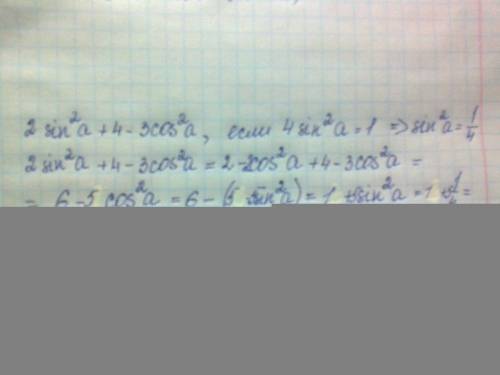 2 sin²a + 4 - 3cos²a, если 4 sin²a = 1 => sin²a = 1/4
2 sin²a + 4 - 3cos²a = 2 - 2cos²a + 4 - 3cos²a =
= 6 - 5 cos²a = 6 - (5 sin²a) = 1 sin²a = 1